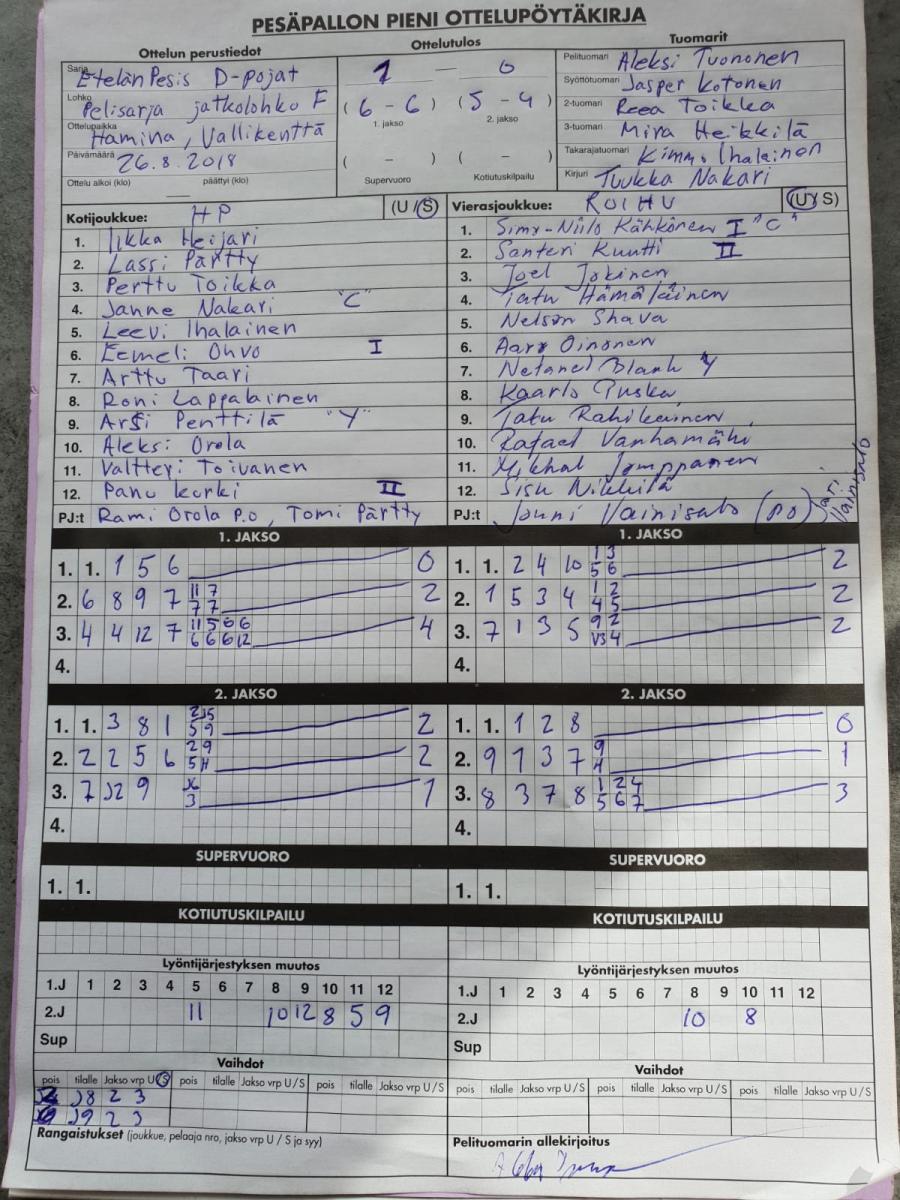 PESÄPALLON PIENI OTTELUPÖYTÄKIRJA
Ottelun perustiedot
Sarja EtelänPesis D-pojat
Lohko Pelisarja jatkolohko F
Ottelupaikka Hamina, Vallikenttä
Päivämäärä 26.8.2018
Ottelu alkoi (klo) päättyi (klo)
Ottelutulos
1 — 0
(6-6) (5-4)
1. jakso 2. jakso
( - ) ( - )
Supervuoro Kotiutuskilpailu
Tuomarit
Pelituomari Aleksi Tuononen
Syöttötuomari Jasper Kotonen
2-tuomari Reea Toikka
3-tuomari Mira Heikkilä
Takarajatuomari Kimmo Ihalainen
Kirjuri Tuukka Nakari
Kotijoukkue: HP (U/S)
1. Iikka Heijari
2. Lassi Pärtty
3. Perttu Toikka
4. Janne Nakari "C"
5. Leevi Ihalainen
6. Eemeli Ohvo I
7. Arttu Taari
8. Roni Lappalainen
9. Arsi Penttilä "Y"
10. Aleksi Orola
11. Valtteri Toivanen
12. Panu Kurki II
PJ:t Rami Orola P.O, Tomi Pärtty
Vierasjoukkue: ROIHU (U/S)
1. Simo-Niilo Kähkönen I "C"
2. Santeri Kuutti II
3. Joel Jokinen
4. Tatu Hämäläinen
5. Nelson Shava
6. Aaro Oinonen
7. Netanel Blank Y
8. Kaarlo Puska
9. Tatu Rahikainen
10. Rafael Vanhamäki
11. Mikhal Jomppanen
12. Sisu Nikkilä
PJ:t Jouni Vainisalo (PO) Jari Vainisalo
1. JAKSO
1. 1. 1 5 6 0
2. 6 8 9 7 11 7 7 7 2
3. 4 4 12 7 11 5 6 6 6 6 6 12 4
4.
1. JAKSO
1. 1. 2 4 10 1 3 5 6 2
2. 1 5 3 4 1 2 4 5 2
3. 7 1 3 5 9 2 V3 4 2
4.
2. JAKSO
1. 1. 3 8 1 5 9 2
2. 2 2 5 6 2 9 5 11 2
3. 7 9 3 1
4.
2. JAKSO
1. 1. 1 2 8 0
2. 9 1 3 7 9 4 1
3. 8 3 7 8 1 2 4 5 6 7 3
4.
SUPERVUORO
1. 1.
SUPERVUORO
1. 1.
KOTIUTUSKILPAILU
KOTIUTUSKILPAILU
Lyöntijärjestyksen muutos
1.J 1 2 3 4 5 6 7 8 9 10 11 12
2.J 11 10 12 8 5 9
Sup
Lyöntijärjestyksen muutos
1.J 1 2 3 4 5 6 7 8 9 10 11 12
2.J 10 8
Sup
Vaihdot
pois tilalle Jakso vrp U/S pois tilalle Jakso vrp U/S pois tilalle Jakso vrp U/S
J8 2 3
J9 2 3
Vaihdot
pois tilalle Jakso vrp U/S pois tilalle Jakso vrp U/S pois tilalle Jakso vrp U/S
Rangaistukset (joukkue, pelaaja nro, jakso vrp U / S ja syy)
Pelituomarin allekirjoitus